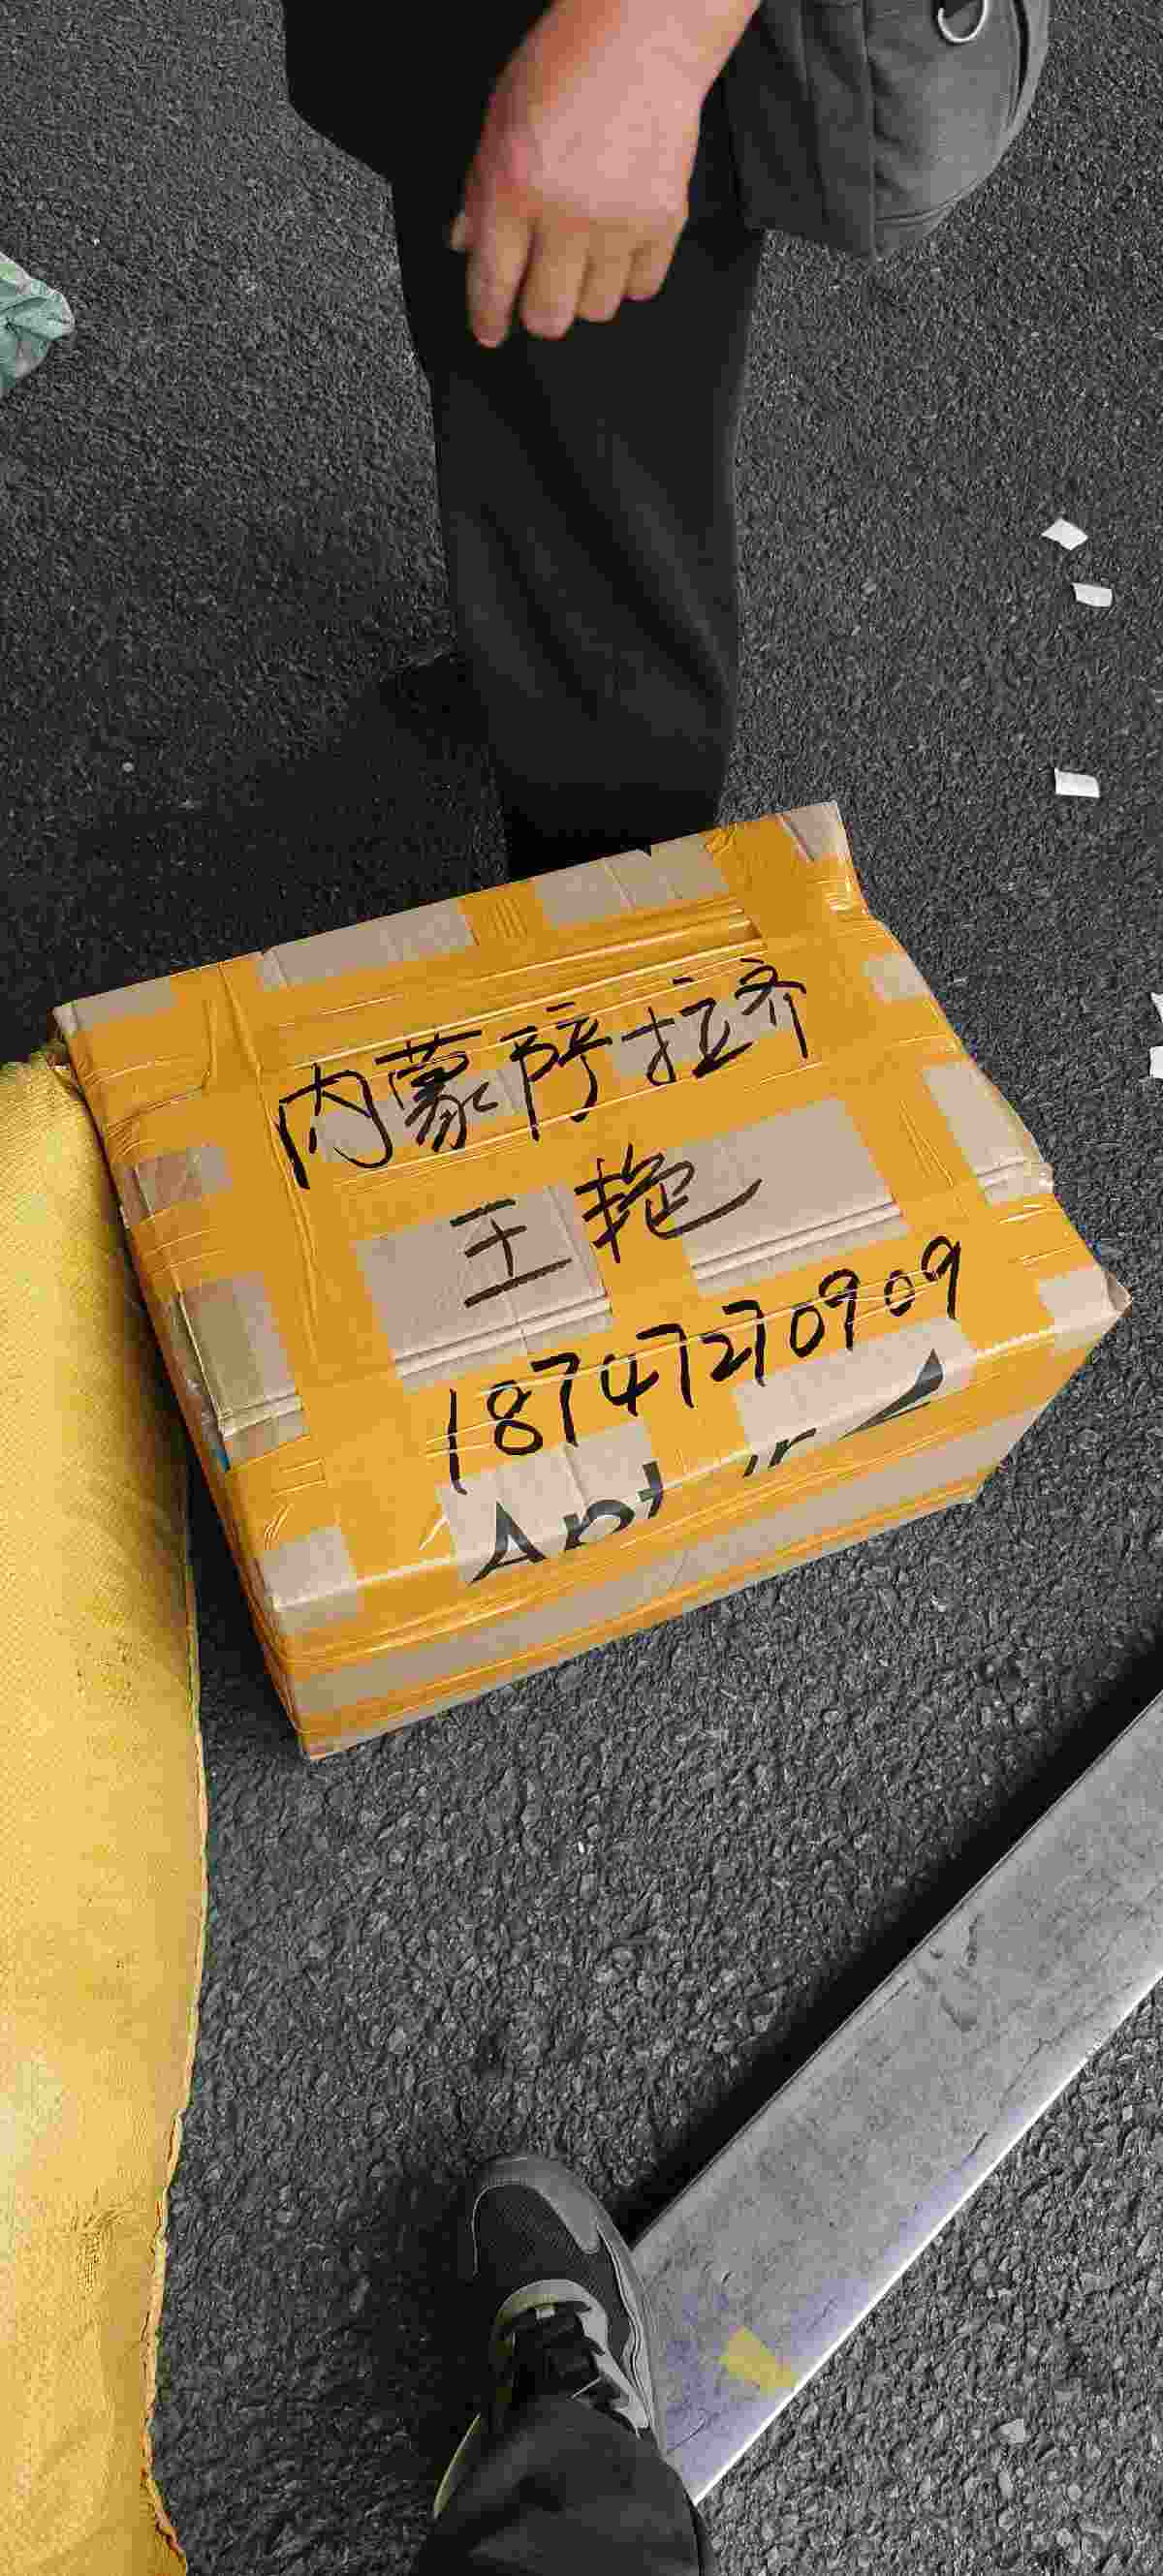 内蒙萨拉齐
王艳
18747270909